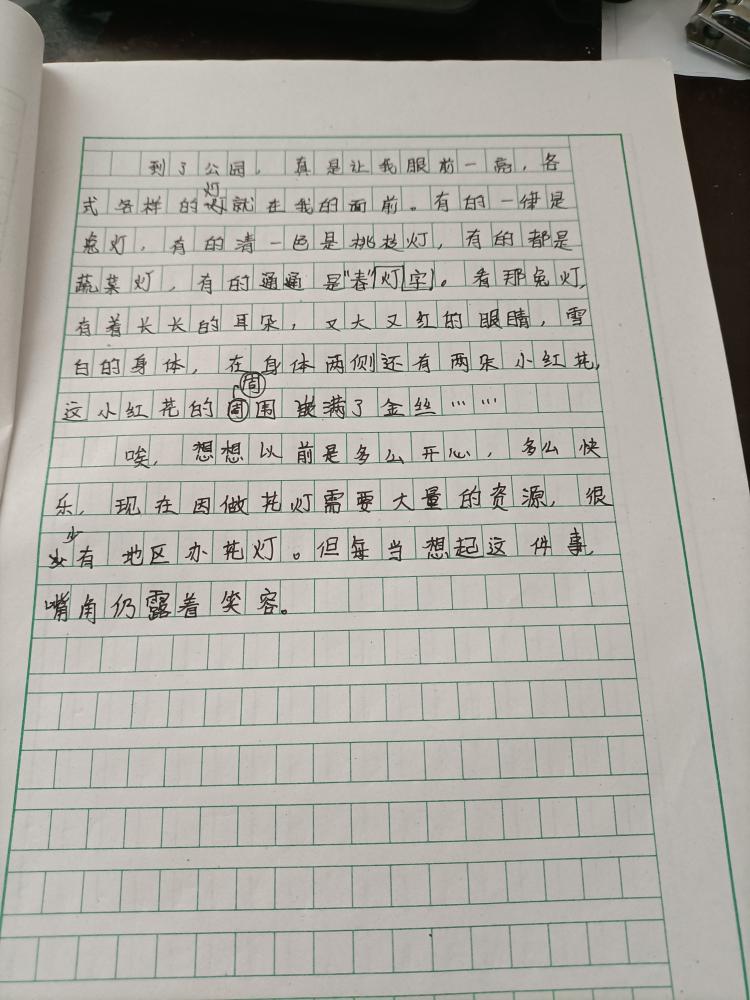 到了公园，真是让我眼前一亮，各
式各样的灯就在我的面前。有的一律是
葱灯，有的清一色是桃枝灯，有的都是
蔬菜灯，有的通通是"春"灯字。看那兔灯，
有着长长的耳朵，又大又红的眼睛，雪
白的身体，在身体两侧还有两朵小红花，
这小红花的周围嵌满了金丝……
唉，想想以前是多么开心，多么快
乐，现在因做花灯需要大量的资源，很
少有地区办花灯。但每当想起这件事，
嘴角仍露着笑容。